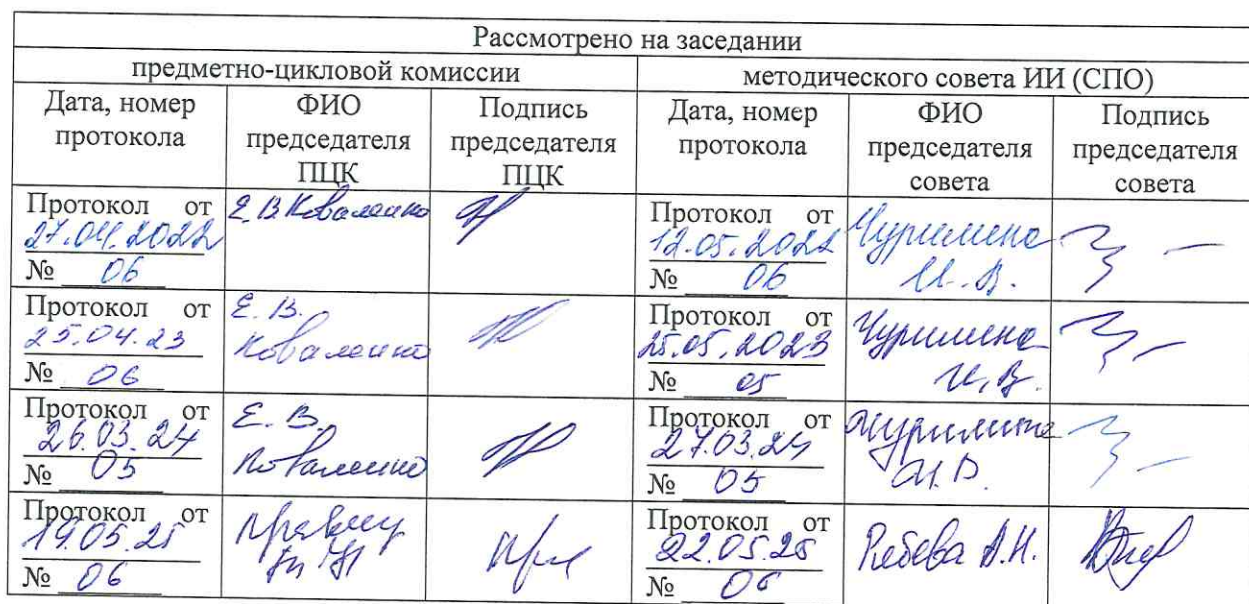 Рассмотрено на заседании
предметно-цикловой комиссии
методического совета ИИ (СПО)
Дата, номер протокола
ФИО председателя ПЦК
Подпись председателя ПЦК
Дата, номер протокола
ФИО председателя совета
Подпись председателя совета
Протокол от
27.04.2022
№ 06
Е.В. Коваленко
Протокол от
12.05.2022
№ 06
И.В.
Протокол от
25.04.23
№ 06
Е.В.
Коваленко
Протокол от
25.05.2023
№ 05
И.В.
Протокол от
26.03.24
№ 05
Е.В.
Коваленко
Протокол от
27.03.24
№ 05
И.В.
Протокол от
19.05.25
№ 06
Протокол от
22.05.25
№ 06
А.Н.